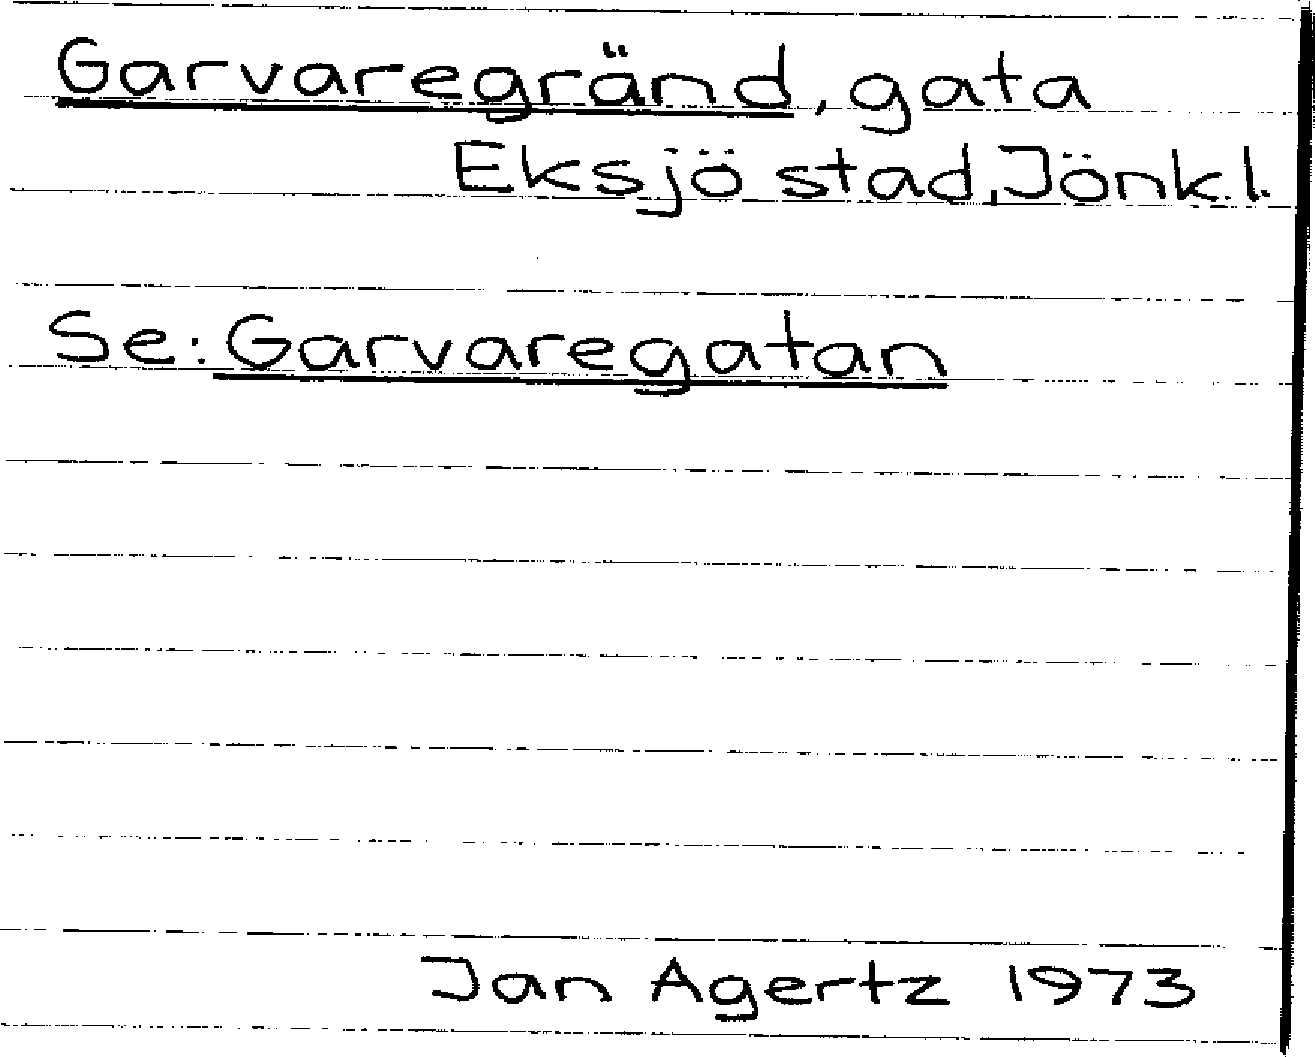 Garvaregränd, gata
Eksjö stad, Jönk.l.
Se: Garvaregatan
Jan Agertz 1973